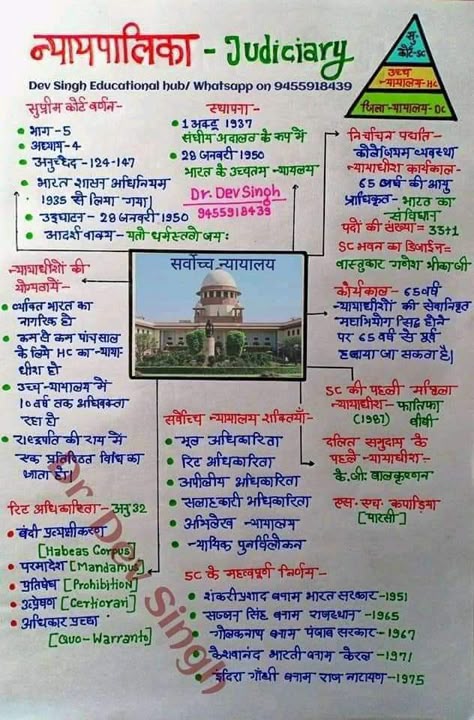 न्यायपालिका - Judiciary
Dev Singh Educational hub/ Whatsapp on 9455918439
सु.
कोर्ट-SC
उच्च
न्यायालय-HC
जिला-न्यायालय-DC
सुप्रीम कोर्ट वर्णन-
भाग-5
अध्याय-4
अनुच्छेद-124-147
भारत शासन अधिनियम
1935 से लिया गया।
उद्घाटन- 28 जनवरी 1950
आदर्श वाक्य- यतो धर्मस्ततो जयः
स्थापना-
1 अक्टू 1937
संघीय अदालत के रूप में
28 जनवरी 1950
भारत के उच्चतम न्यायालय
Dr. Dev Singh
9455918439
निर्वाचन पद्धति-
कॉलेजियम व्यवस्था
न्यायाधीश कार्यकाल-
65 वर्ष की आयु
प्राधिकृत- भारत का
संविधान
पदों की संख्या = 33+1
SC भवन का डिजाईन=
वास्तुकार गणेश भीकाजी
न्यायाधीशों की
योग्यतायें-
व्यक्ति भारत का
नागरिक हो
कम से कम पांच साल
के लिये HC का न्याया-
धीश हो
उच्च न्यायालय में
10 वर्ष तक अधिवक्ता
रहा हो
राष्ट्रपति की राय में
एक प्रतिष्ठित विधि का
ज्ञाता हो।
सर्वोच्च न्यायालय
कार्यकाल- 65 वर्ष
न्यायाधीशों की सेवानिवृत
महाभियोग सिद्ध होने
पर 65 वर्ष से पूर्व
हटाया जा सकता है।
SC की पहली महिला
न्यायाधीश- फातिमा
(1987) बीवी
दलित समुदाय के
पहले न्यायाधीश-
के.जी. बालकृष्णन
एस. एच. कपाड़िया
[पारसी]
सर्वोच्च न्यायालय शक्तियाँ-
मूल अधिकारिता
रिट अधिकारिता
अपीलीय अधिकारिता
सलाहकारी अधिकारिता
अभिलेख न्यायालय
न्यायिक पुनर्विलोकन
रिट अधिकारिता- अनु 32
बंदी प्रत्यक्षीकरण
[Habeas Corpus]
परमादेश [Mandamus]
प्रतिषेध [Prohibition]
उत्प्रेषण [Certiorari]
अधिकार पृच्छा
[Quo-Warranto]
SC के महत्वपूर्ण निर्णय-
शंकरी प्रशाद बनाम भारत सरकार-1951
सज्जन सिंह बनाम राजस्थान -1965
गोलकनाथ बनाम पंजाब सरकार-1967
केशवानंद भारती बनाम केरल-1971
इंदिरा गाँधी बनाम राज नारायण-1975
Dr Dev Singh